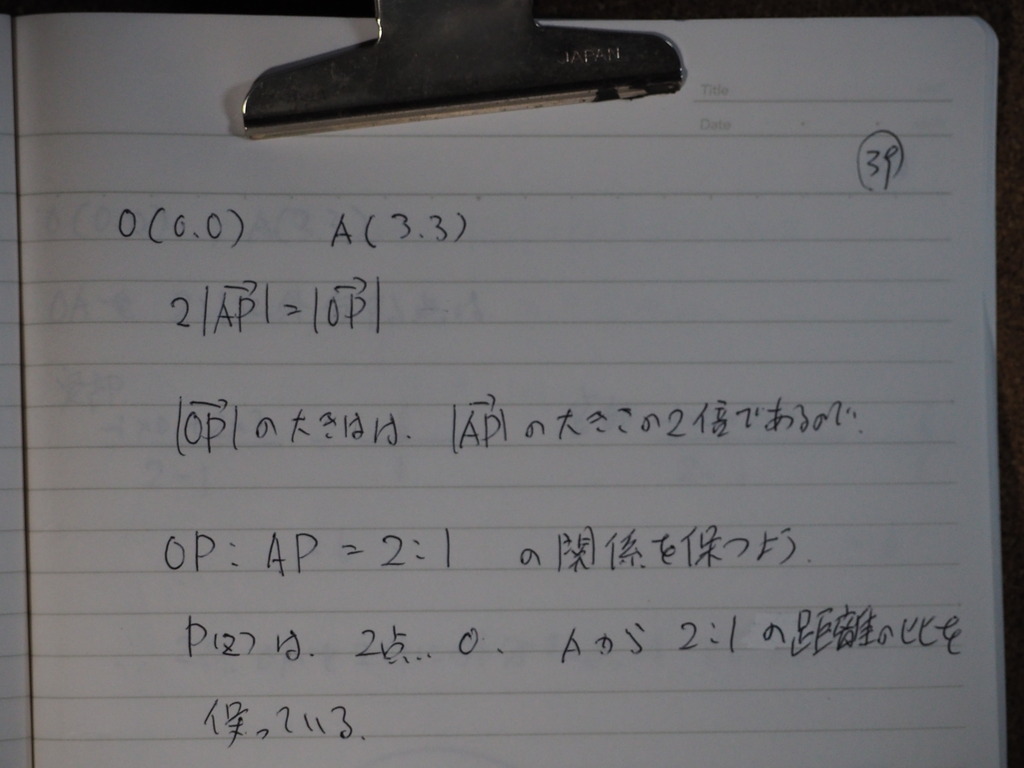 JAPAN
Title
Date
39
O(0.0) A(3.3)
2|AP|=|OP|
|OP|の大きはは. |AP|の大きこの2倍であるので.
OP: AP = 2:1 の関係を保つよう.
P(z)は. 2点.. O. Aから 2:1 の距離の比を
保っている.